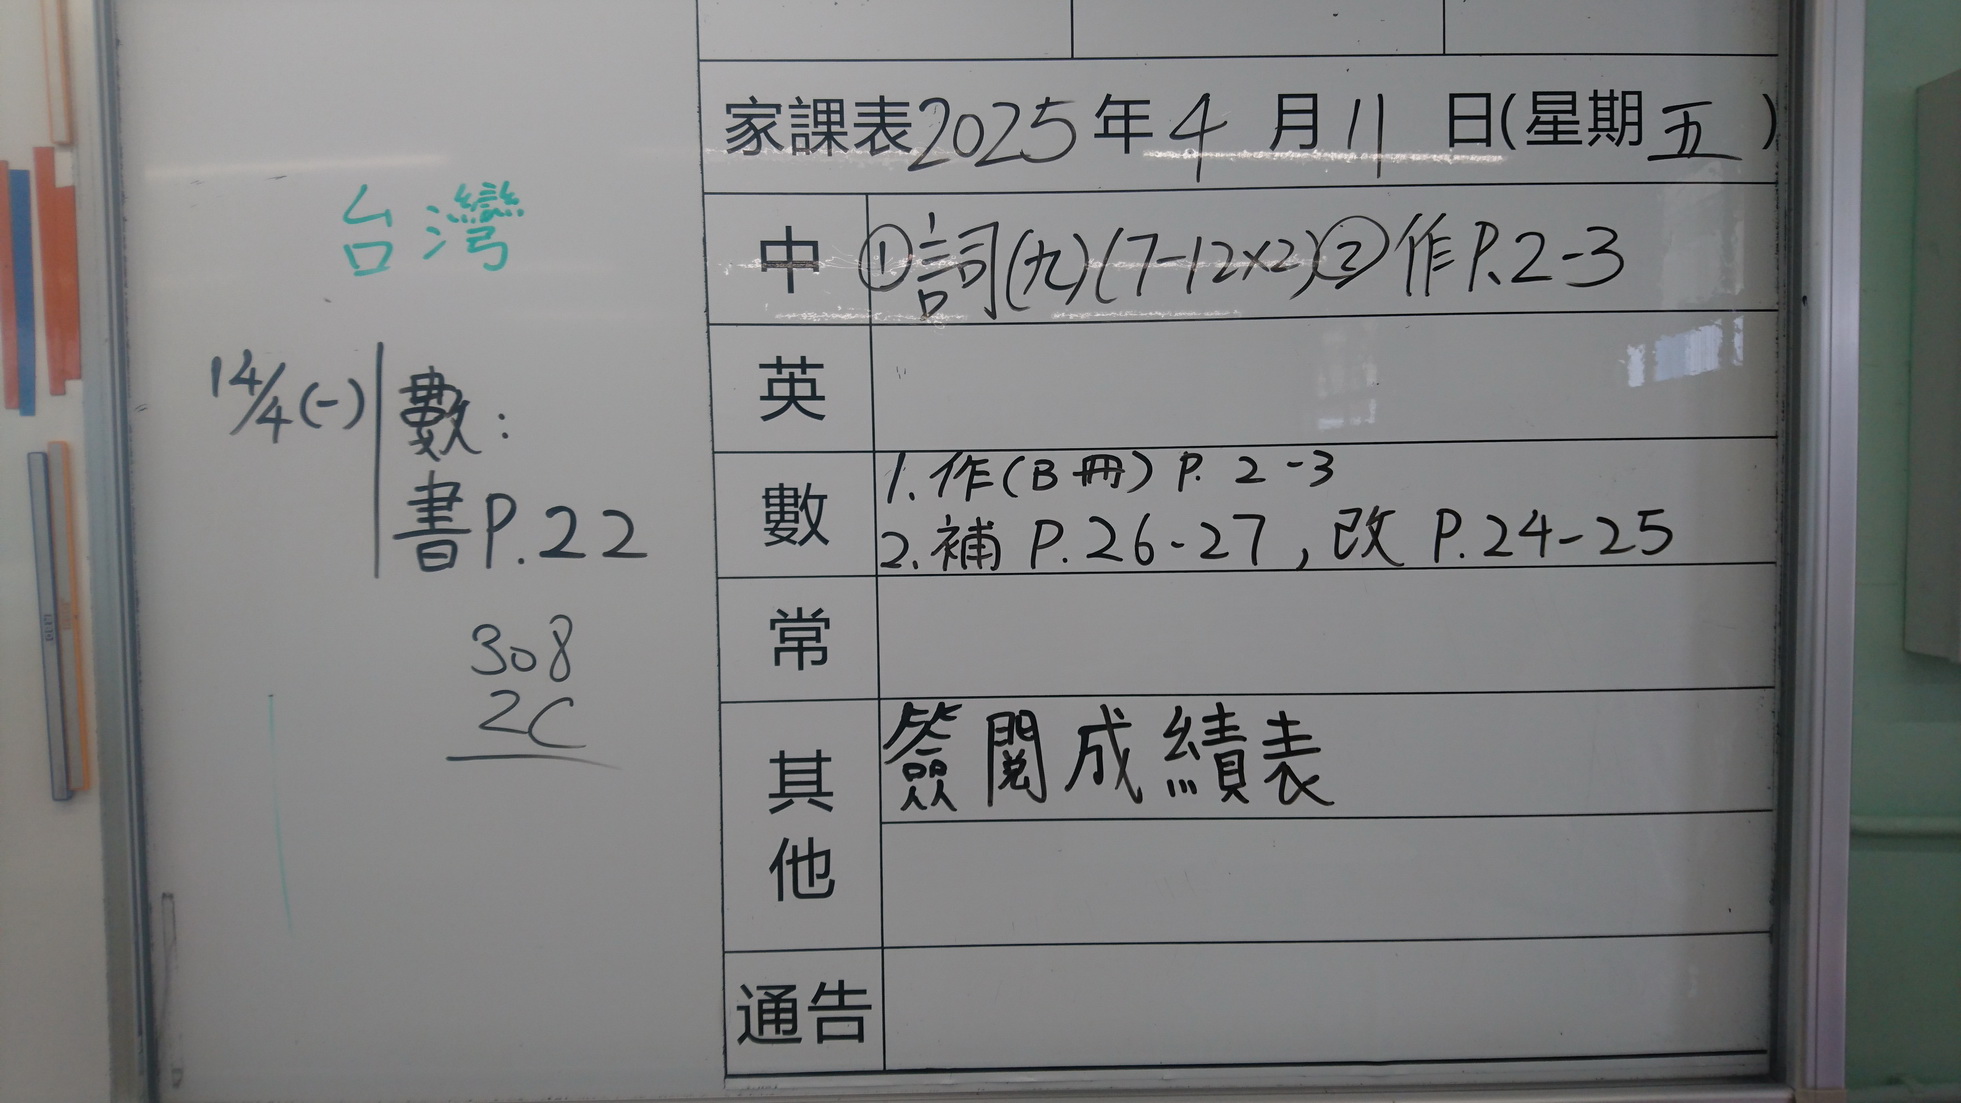 台灣
14/4(一) 數:
書P.22
308
2C
家課表2025年4月11日(星期五)
中 ①詞(九)(7-12×2)②作P.2-3
英
數 1.作(B冊)P.2-3
2.補P.26-27,改P.24-25
常
其他 簽閱成績表
通告